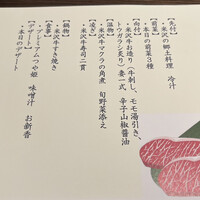 【先付】
・米沢の郷土料理 冷汁
【前菜】
・本日の前菜3種
【向付】
・米沢牛お造り(牛刺し、モモ湯引き、
トウガラシ炙り)妻一式 辛子山椒醤油
【温事】
・米沢牛マクラの角煮 旬野菜添え
【凌ぎ】
・米沢牛寿司二貫
【鍋物】
・米沢牛すき焼き
【食事】
・プレミアムつや姫 味噌汁 お新香
【デザート】
・本日のデザート